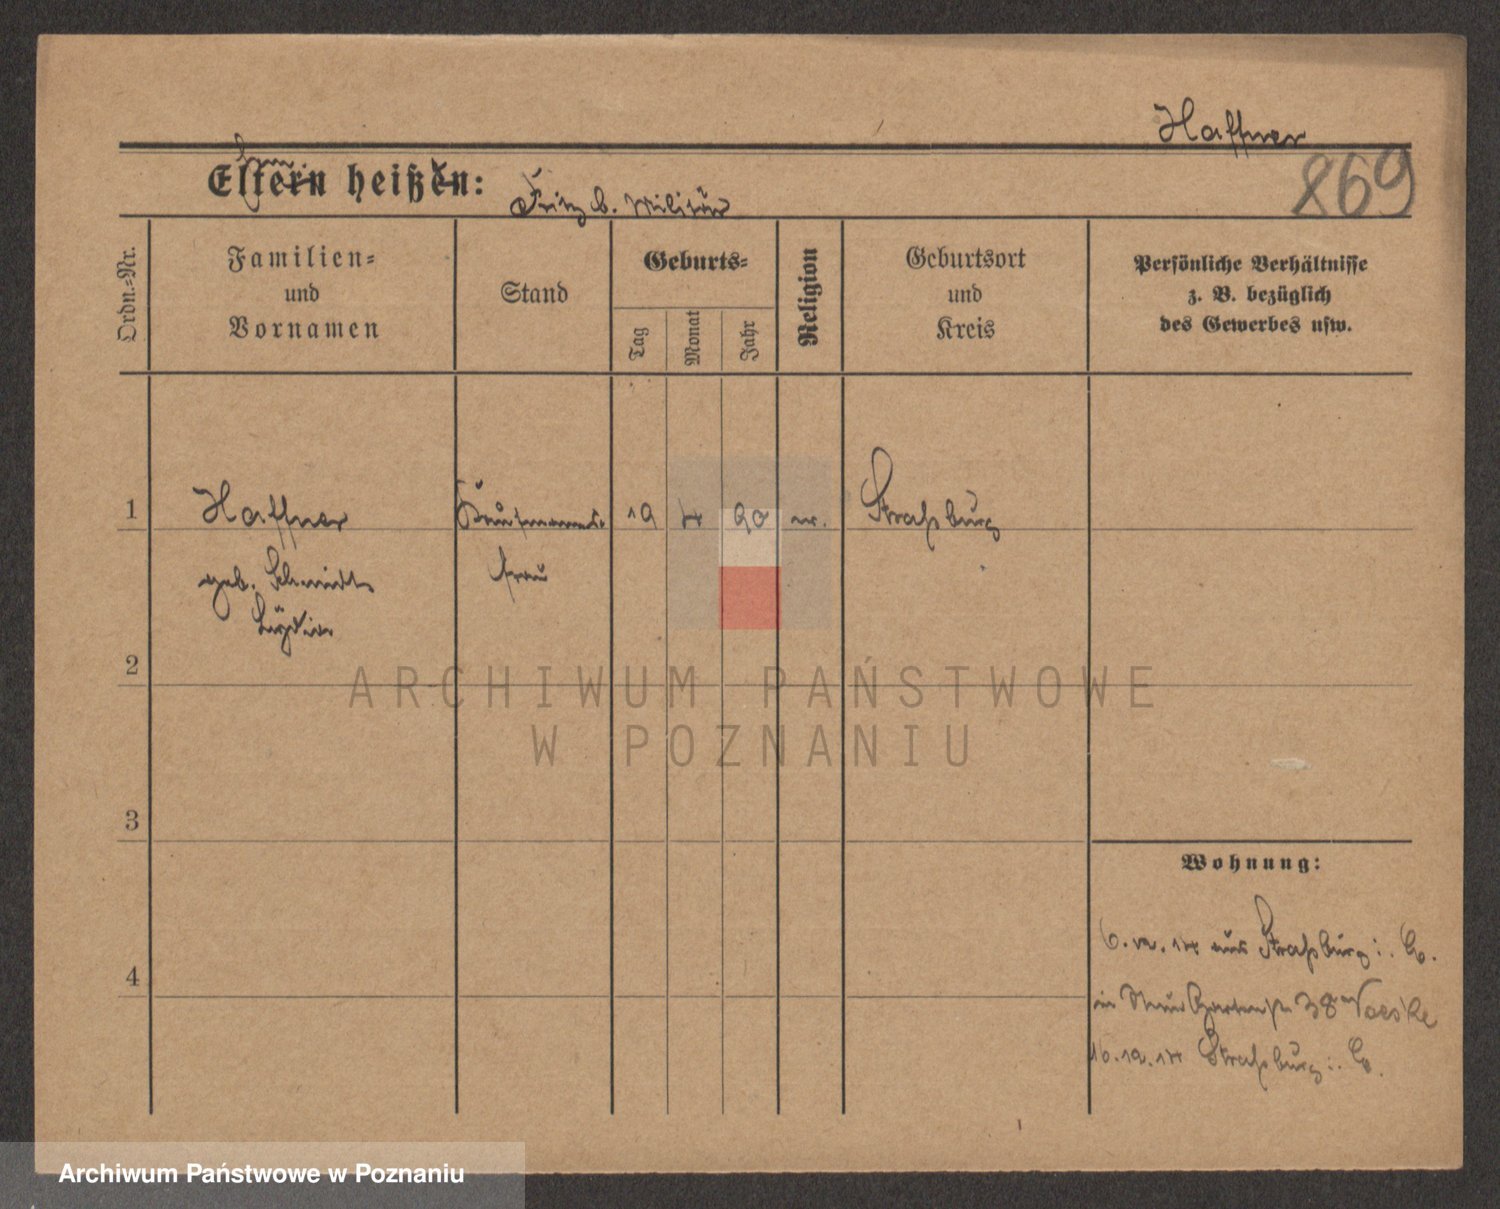 Haffner
869
Eltern heißen: Fritz b. Militär
Ordn.-Nr.
Familien-
und
Vornamen
Stand
Geburts-
Tag
Monat
Jahr
Religion
Geburtsort
und
Kreis
Persönliche Verhältnisse
z. B. bezüglich
des Gewerbes usw.
1 Haffner Kaufmanns- 19 4 90 Straßburg
geb. Schmidt frau
2
3
Wohnung:
4
6. 12. 14 aus Straßburg i. E.
in Neue Gartenstr 38 Noeske
16. 12. 14 Straßburg i. E.
ARCHIWUM PAŃSTWOWE
W POZNANIU
Archiwum Państwowe w Poznaniu